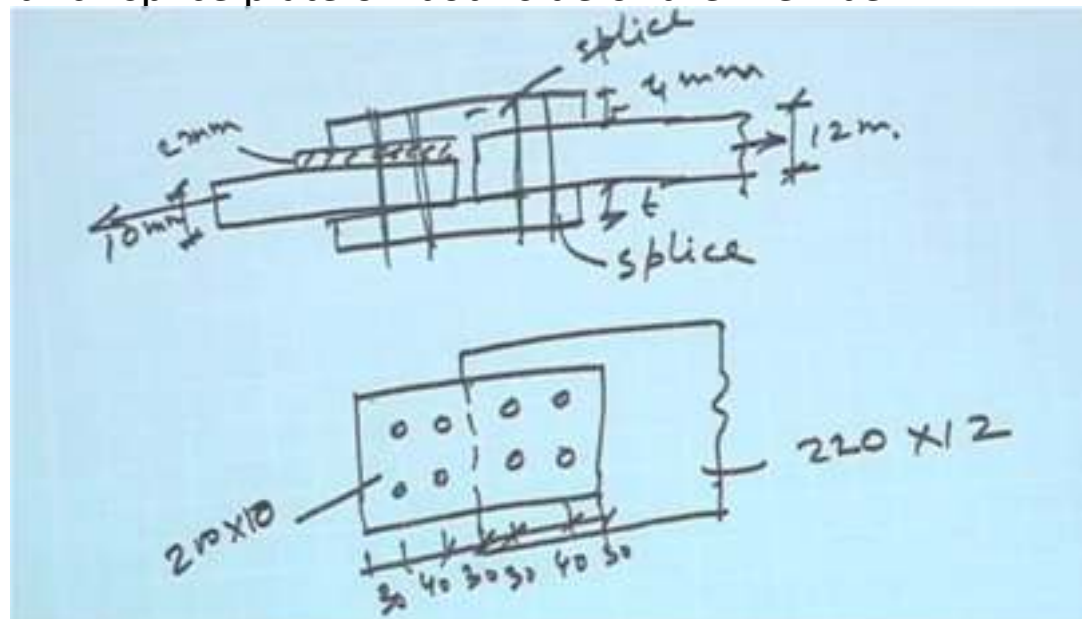 splice
4 mm
2mm
12 m.
10 mm
t
splice
220 X12
200X10
30 40 30 30 40 30